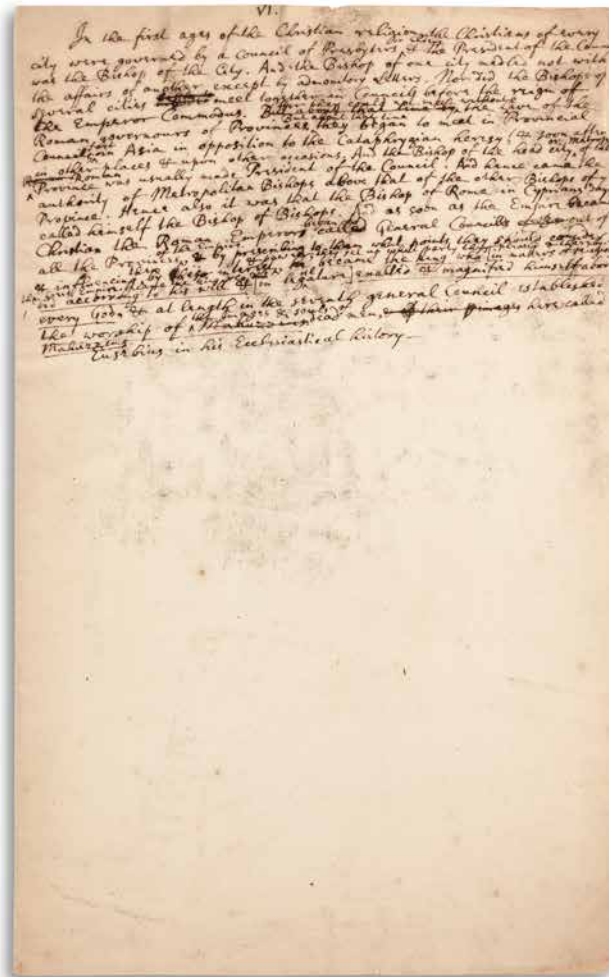 VI.
In the first ages of the Christian religion the Christians of every
city were governed by a Council of Presbyters & the President of the Coun
was the Bishop of the City. And the Bishop of one city medled not with
the affairs of another except by admonitory Letters. Nor did the Bishops of
several cities meet together in Councils before the reign of
the Emperor Commodus. But about that time
Roman governours of Provinces they began to meet in Provincial
Councils in Asia in opposition to the Cataphrygian heresy (& soon after
in other places & upon other occasions, And the Bishop of the head city of the
Province was usually made President of the Council. And hence came the
authority of Metropolitan Bishops above that of the other Bishops of ye
Province. Hence also it was that the Bishop of Rome in Cyprians
called himself the Bishop of Bishops. as soon as the Empire became
Christian the Roman Emperors called General Councills out of
all the Provinces & by prescribing to them what points they should consider
& influencing them by their interest
the King who in matters of religion
did according to his will & exalted & magnified himself above
every God; & at length in the seventh general Council established
the worship of the images & souls of dead men, here called
Mahuzzims
Eusebius in his Ecclesiastical history—